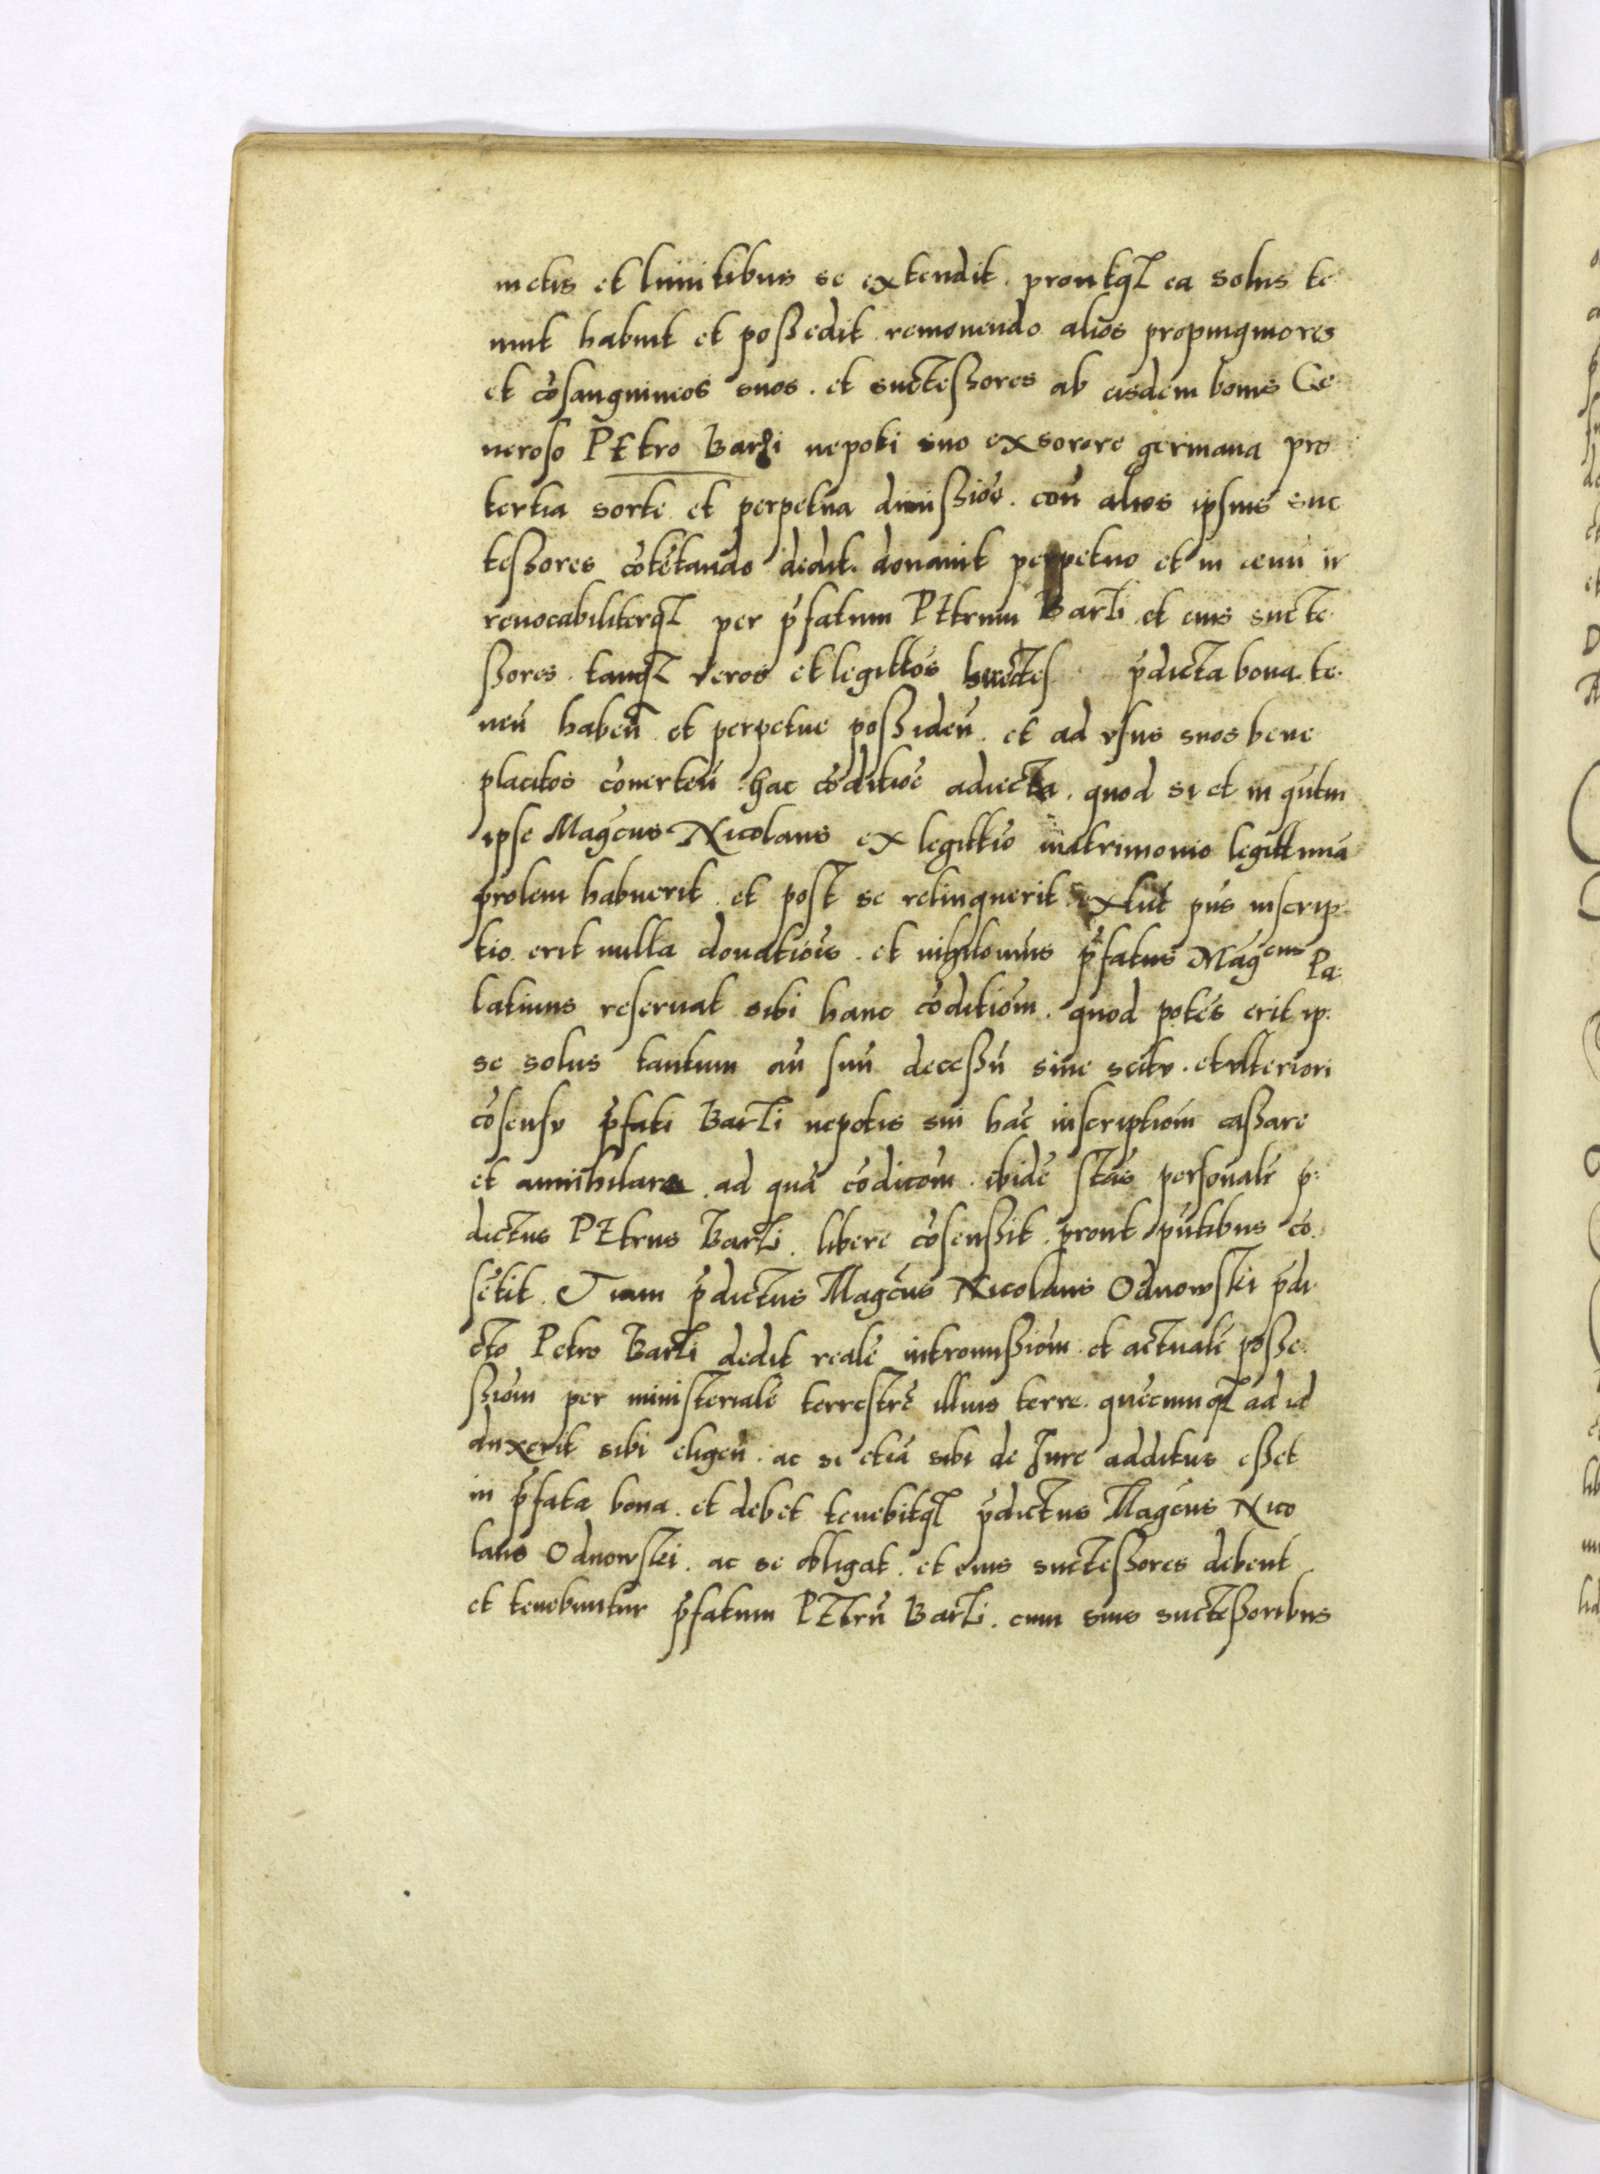 metis et limitibus se extendit . proutq̃ ea solus te
nuit habuit et possedit . remouendo alios propinquiores
et cōsanguineos suos . et successores ab eisdem bonis Ge
neroso PEtro Barzi nepoti suo ex sorore germana pro
tertia sorte et perpetua diuisiōe . coñ alios ipsius suc
cessores cōtētando dedit . donauit perpetuo et in æuū ir
reuocabiliterq̃ per p̄fatum PEtrum Barzi et eius succe
ssores . tanq̃ veros et legittōs p̄dicta bona . te
neñ habeñ et perpetue possideñ . et ad vsus suos bene
placitos cōuerteñ hac cōditiōe adiecta . quod si et in q̃ntum
ipse Magc̄us Nicolaus ex legittīo matrimonio legittimā
prolem habuerit . et post se relinquerit . extūc p̄ns inscrip
tio erit nulla donatiōis . et nihilomīus p̄fatus Magcus Pa:
latinus reseruat sibi hanc cōditiōm . quod potēs erit ip:
se solus tantum añ suū decessū sine scitv . et vlteriori
cōsensv p̄fati Barzi nepotis sui hāc inscriptiōm cassare
et annihilare . ad quā cōditōm . ibidē stās personalr̄ p̄:
dictus PEtrus Barzi . libere cōsensit . prout p̄ntibus cō
sētit . Jam p̄dictus Magc̄us Nicolaus Odnowski p̄di
cto Petro Barzi dedit realē intromissiōm . et actualē posse
ssiōm per ministerialē terrestrē illius terre . quēcumq̃ ad id
duxerit sibi eligeñ . ac si etiā sibi de Jure additus esset
in p̄fata bona . et debet tenebitq̃ p̄dictus Magc̄us Nico
laus Odnowski . ac se obligat . et eius successores debent
et tenebuntur p̄fatum PEtrū Barzi . cum suis successoribus